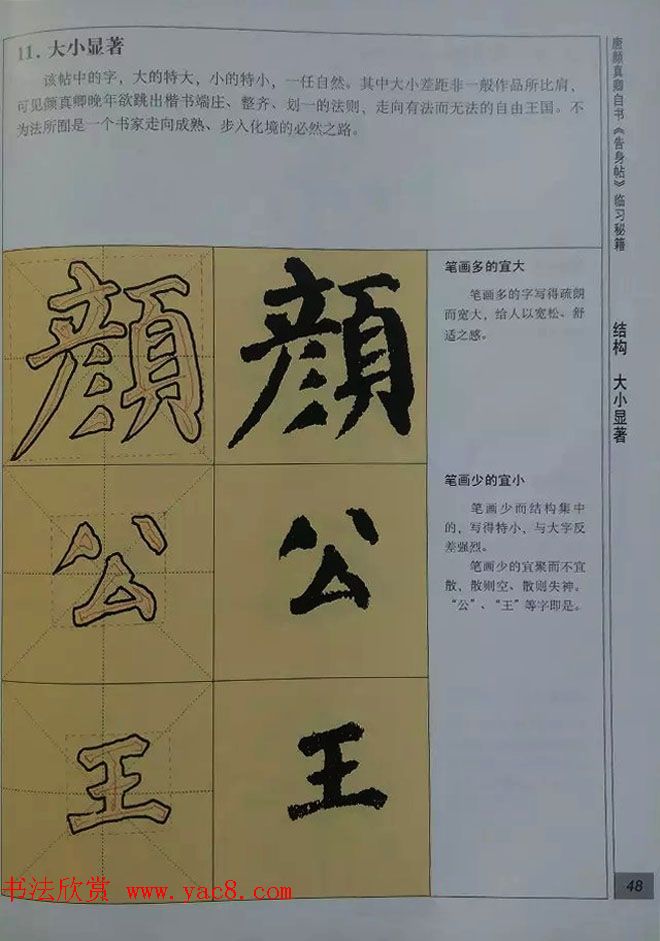 11. 大小显著
该帖中的字，大的特大，小的特小，一任自然。其中大小差距非一般作品所比肩，
可见颜真卿晚年欲跳出楷书端庄、整齐、划一的法则，走向有法而无法的自由王国。不
为法所囿是一个书家走向成熟、步入化境的必然之路。
唐颜真卿自书《告身帖》临习秘籍
结构 大小显著
顏 顏
笔画多的宜大
笔画多的字写得疏朗
而宽大，给人以宽松、舒
适之感。
公 公
笔画少的宜小
笔画少而结构集中
的，写得特小，与大字反
差强烈。
笔画少的宜聚而不宜
散，散则空、散则失神。
“公”、“王”等字即是。
王 王
48
书法欣赏 www.yac8.com